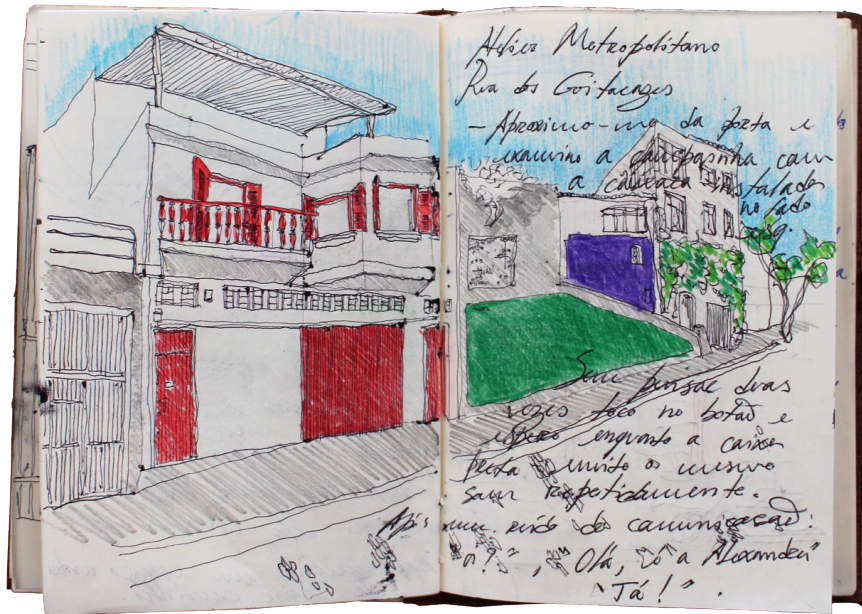 Atelier Metropolitano
Rua dos Goitacazes
- Aproximo-me da porta e
examino a campainha com
a câmara instalada
no lado
Sem pensar duas
vezes toco no botão e
espero enquanto a caixa
preta emite o mesmo
som repetidamente.
Após um ruído de comunicação:
"Olá, sou a Alexandra"
"Já!".